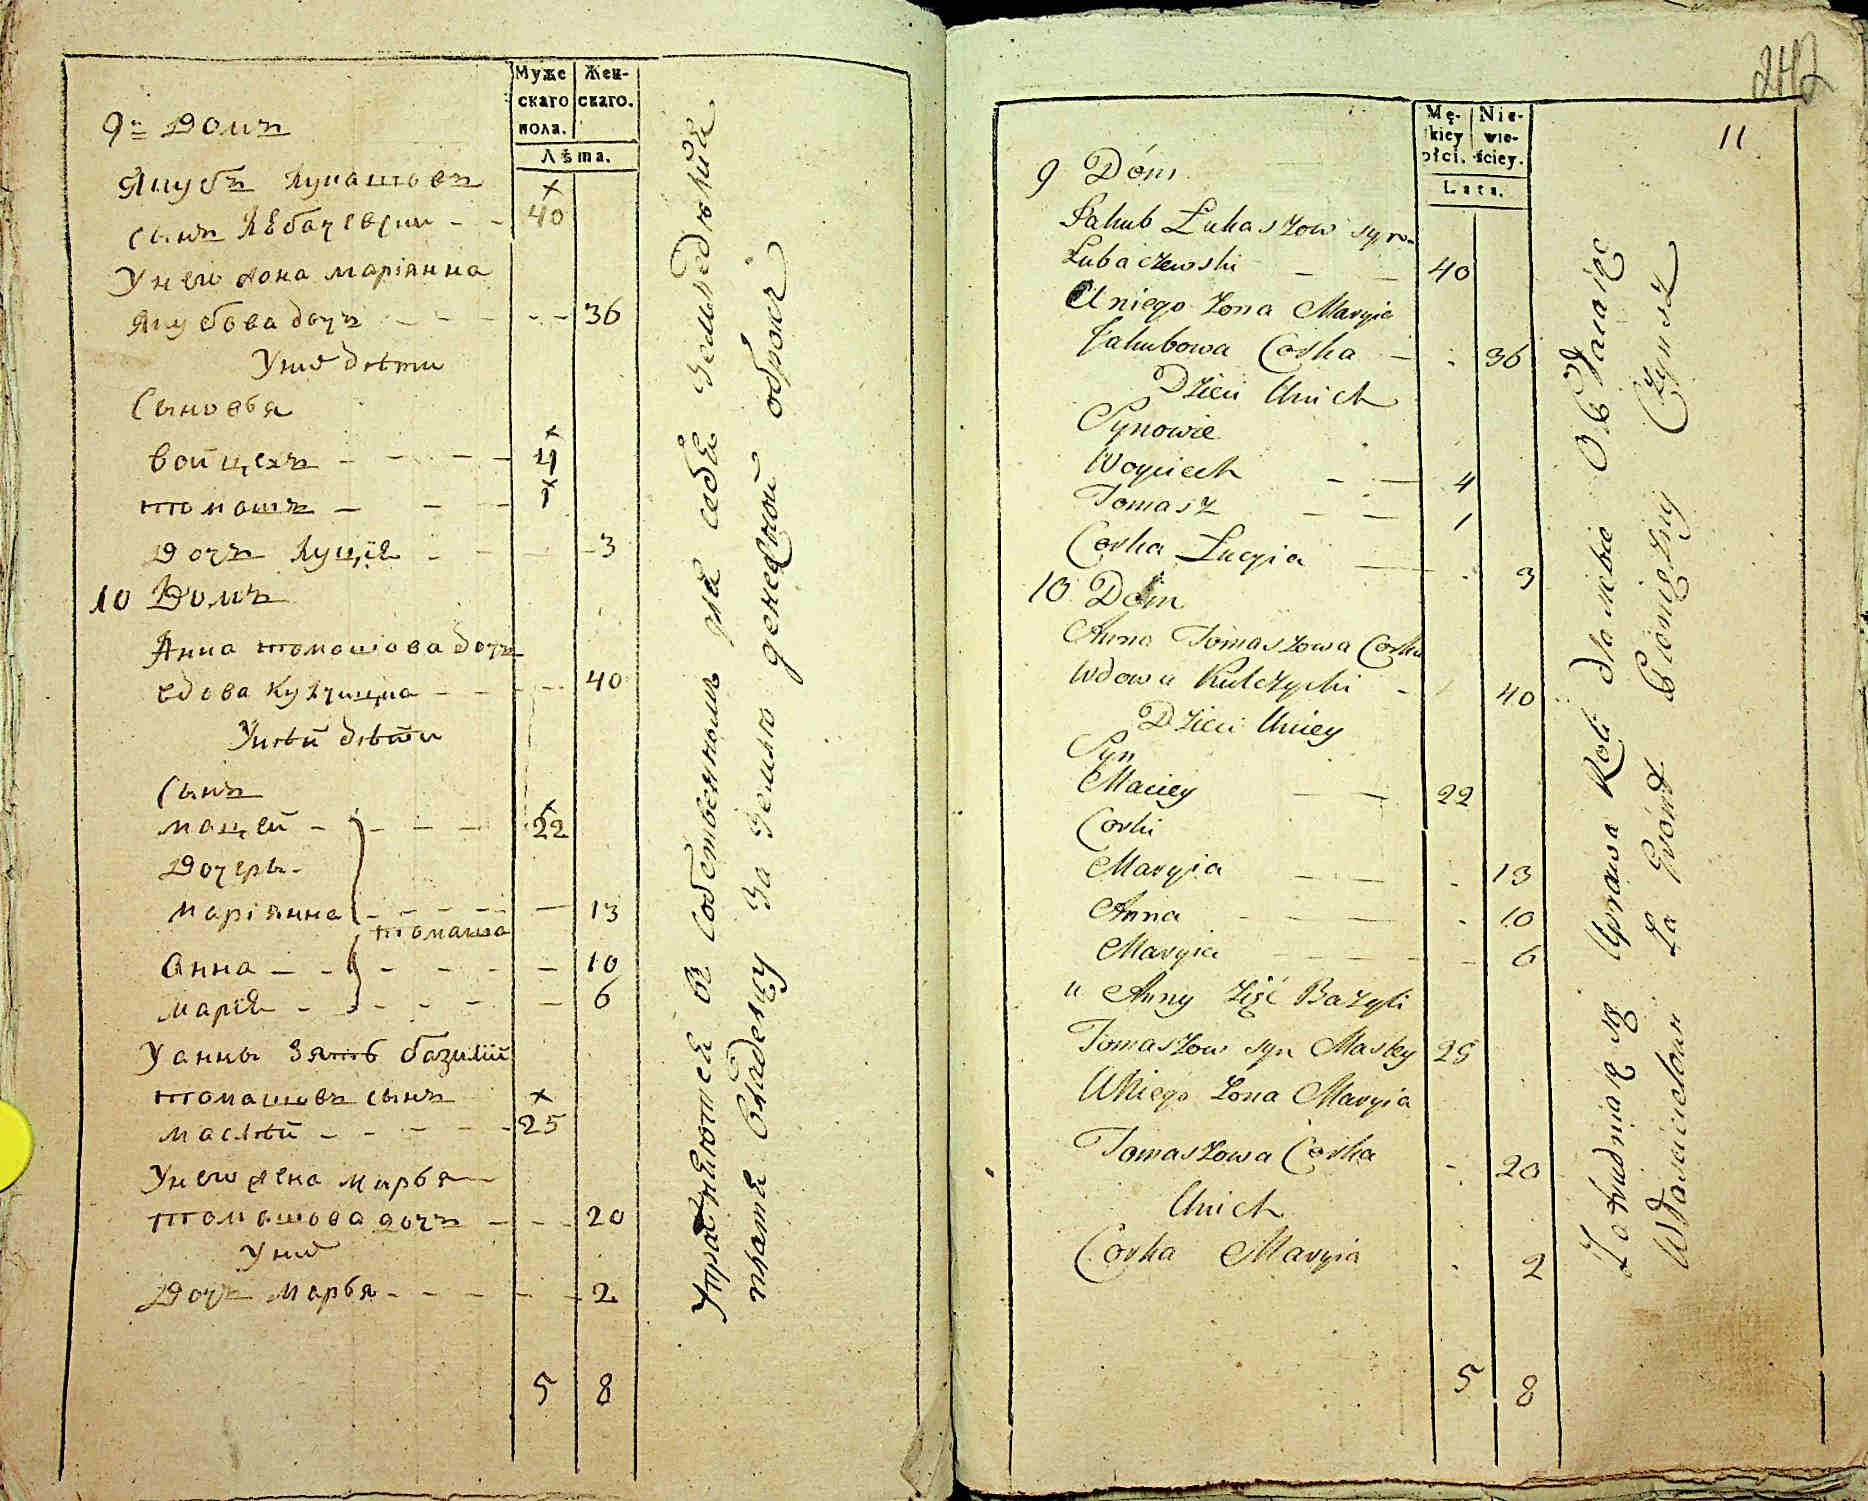 Муже
скаго
пола.
Жен-
скаго.
Лѣта.
9й Домъ
Якубъ Лукашовъ
сынъ Любачевски - - 40
У него жона Маріянна
Якубова дочъ - - - - - 36
У них дѣти
Сыновья
Войцехъ - - - - 4
Томашъ - - - 1
Дочъ Луція - - - - 3
10 Домъ
Анна Томашова дочъ
вдова Кулчицка - - - - 40
У ней дѣти
Сынъ
Мацей - - - - 22
Дочеры
Маріянна - - - - - - 13
Томаша
Анна - - - - - - - 10
Марія - - - - - - 6
У Анны зять Базилій
Томашовъ сынъ
Маслѣй - - - - - 25
У него жена Марья
Томашова дочъ - - - 20
У них
Дочъ Марья - - - - - - 2
5 8
Упражняются въ собственномъ для себя земледѣліи
платя владельцу за землю денежной оброкъ
242
11
Mę-
kiey
płci.
Nie-
wie-
ściey.
Lata.
9 Dóm
Jakub Łukaszow syn
Lubaczewski - - 40
U niego żona Maryia
Jakubowa Corka - - 36
Dzieci Unich
Synowie
Woyciech - - 4
Tomasz - - 1
Corka Łucyia - - 3
10 Dóm
Anna Tomaszowa Corka
Wdowa Kulczycki - - 40
Dzieci Uniey
Syn
Maciey - - 22
Corki
Maryia - - - - 13
Anna - - - - 10
Maryia - - - - - 6
u Anny Zięć Bazyli
Tomaszow syn Masley 25
Uniego Zona Maryia
Tomaszowa Corka - 20
Unich
Corka Maryia - 2
5 8
Zatrudniaią się Uprawa Roli dla siebie Opłacaiąc
Właścicielowi Za Grónt Pieniężny Czynsz